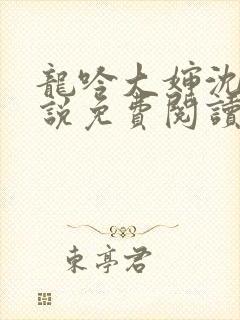 龍吟大婶沈
說免費閱讀
東亭君